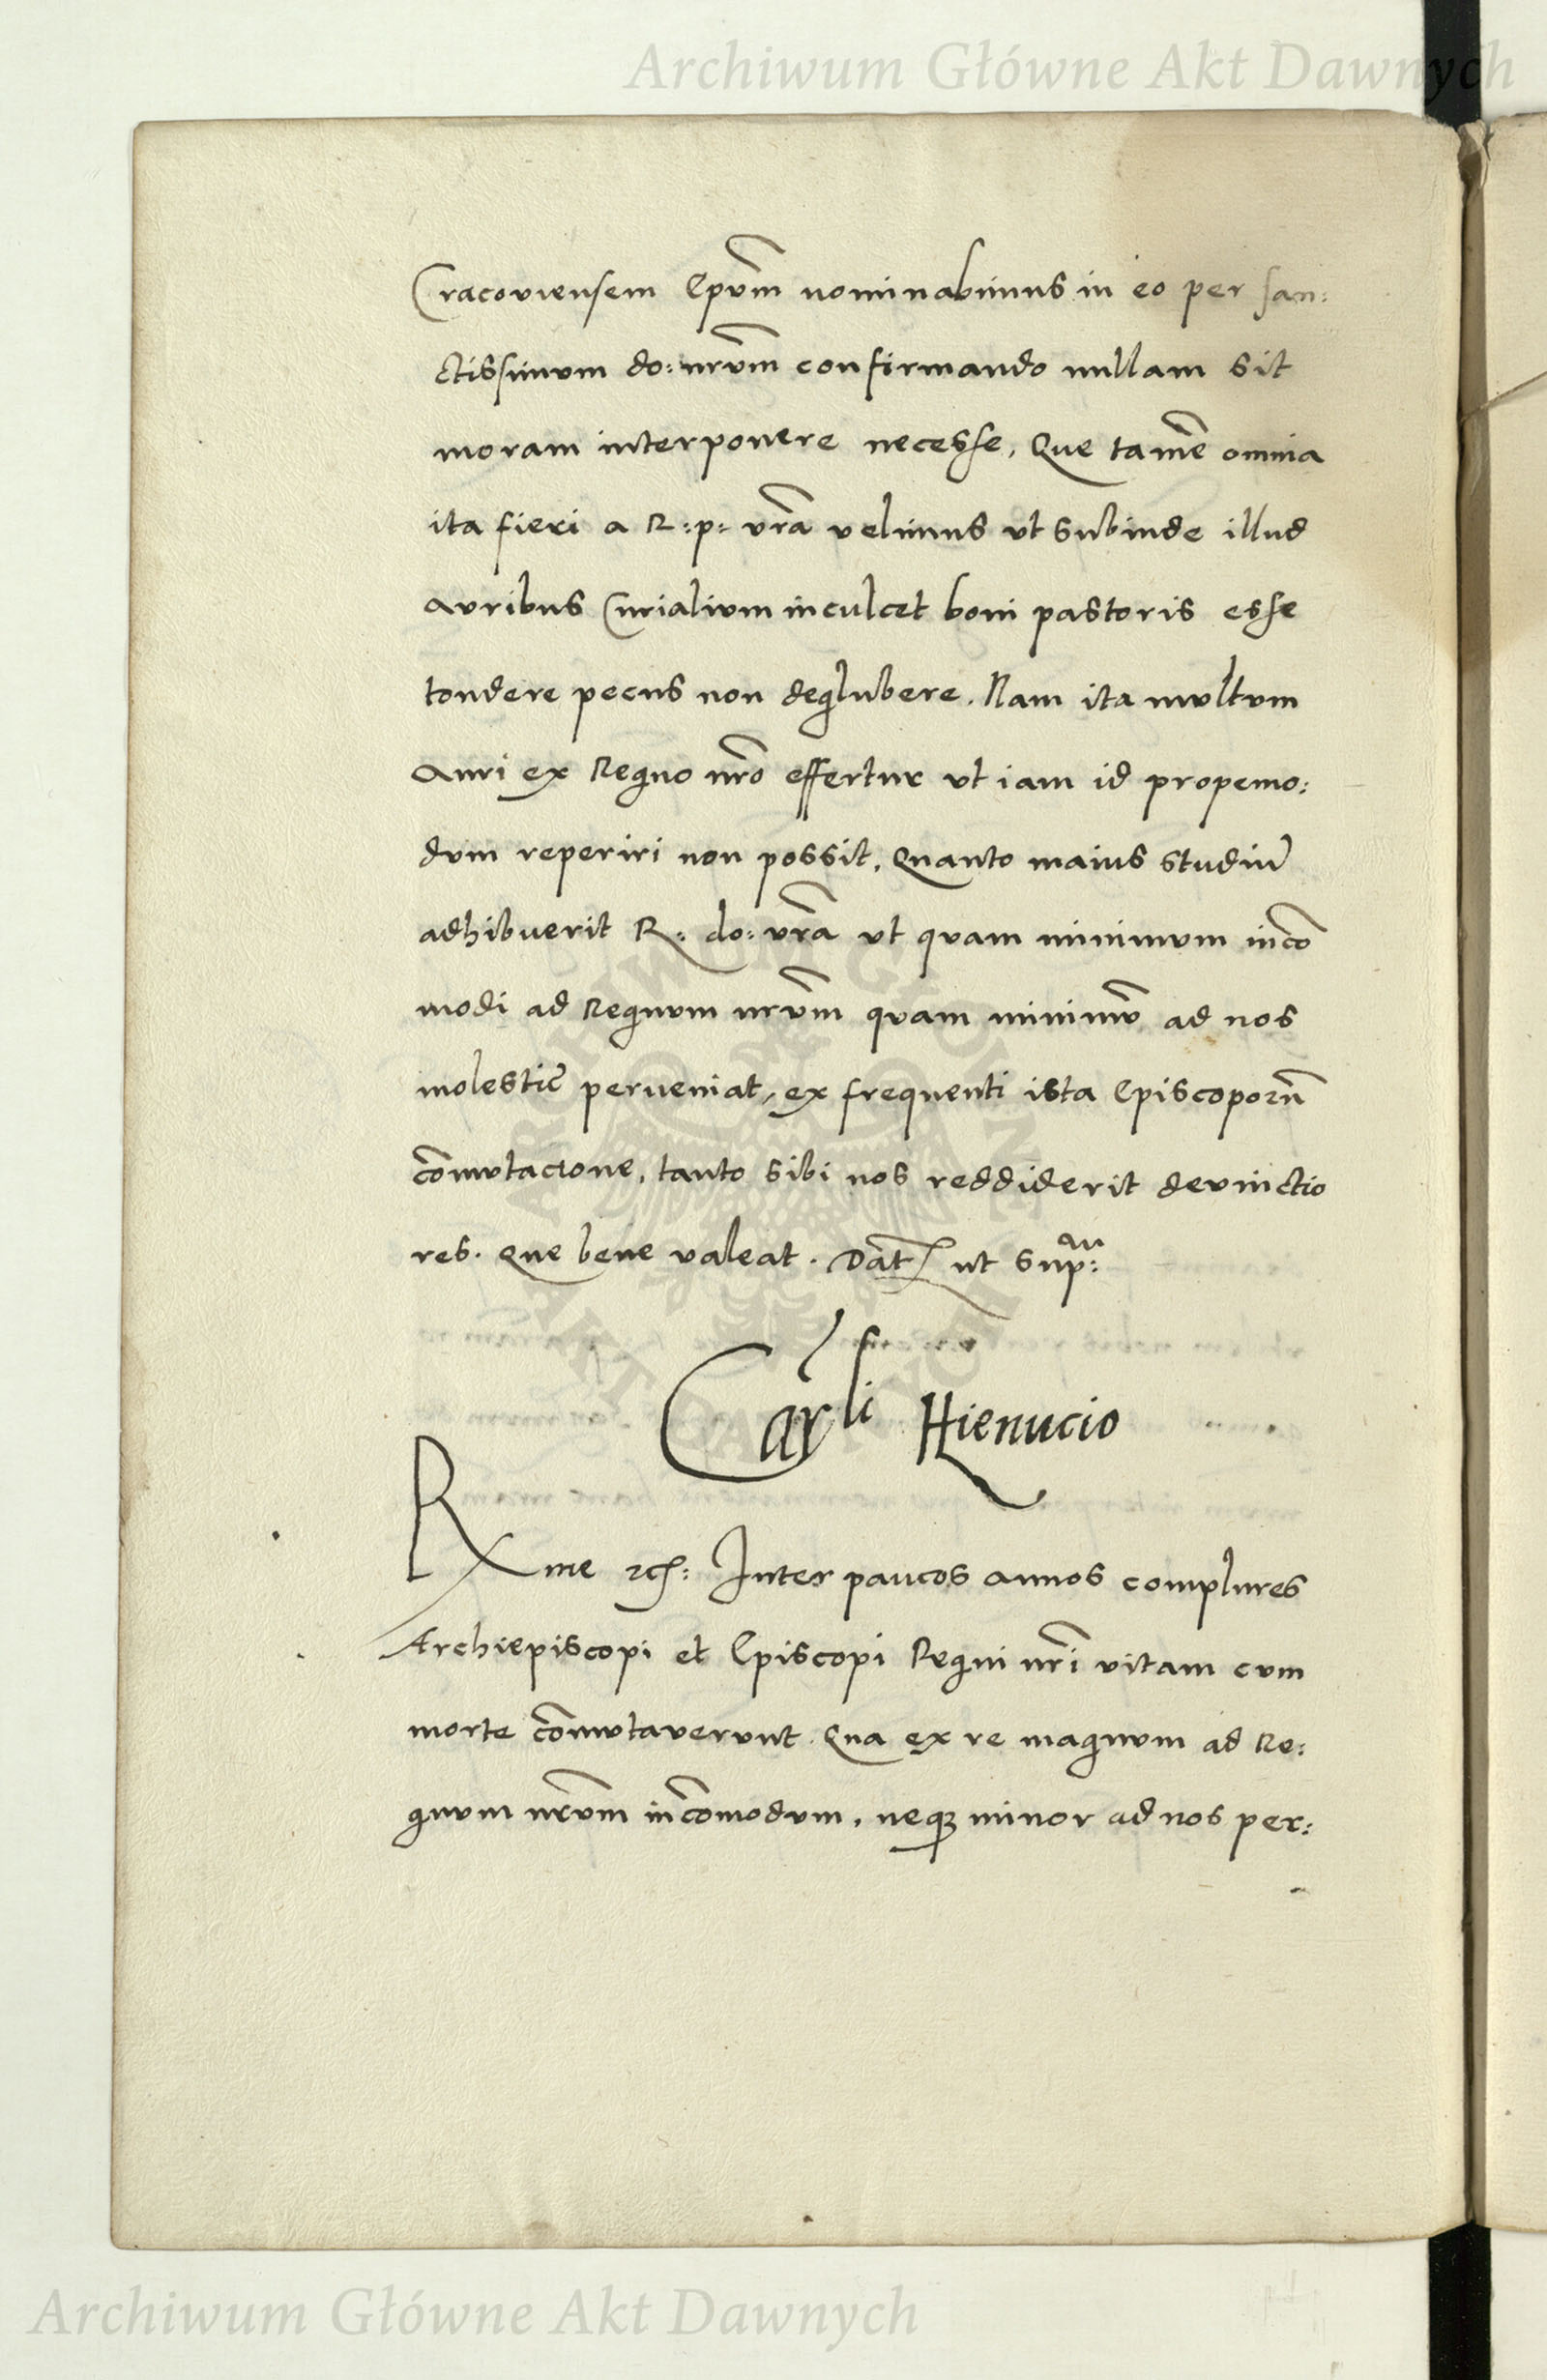 Archiwum Główne Akt Dawnych
Cracoviensem Ep̄vm nominabimus in eo per san:
ctissimvm do: nr̄vm confirmando nullam sit
moram interponere necesse, Que tamē omnia
ita fieri a R: p: vr̄a velimus vt subinde illud
avribus Curialivm inculcet boni pastoris esse
tondere pecus non deglubere. Nam ita mvltvm
Auri ex Regno nr̄o effertur vt iam id propemo:
dvm reperiri non possit. Quanto maius studiū
adhibuerit R: do: vr̄a vt qvam minimvm incō
modi ad Regnvm nr̄vm qvam minimv̄ ad nos
molestiē perveniat, ex frequenti ista Episcoporū
cōmvtacione, tanto sibi nos reddiderit devinctio
res. Que bene valeat. Dat̄ ut sup:ᵃ
Carˡⁱ Hienucio
Rme etc: Inter paucos annos complures
Archiepiscopi et Episcopi Regni nr̄i vitam cvm
morte cōmvtavervnt. Qua ex re magnvm ad Re:
gnvm nr̄vm incōmodvm, neqꝫ minor ad nos per:
Archiwum Główne Akt Dawnych